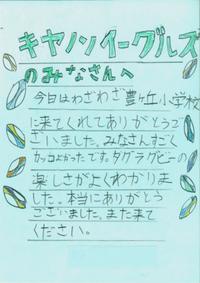 キヤノンイーグルズ
のみなさんへ
今日はわざわざ豊ヶ丘小学校
に来てくれてありがとうご
ざいました。みなさんすごく
カッコよかったです。タグラグビーの
楽しさがよくわかりま
した。本当にありがとう
ございました。また来て
ください。